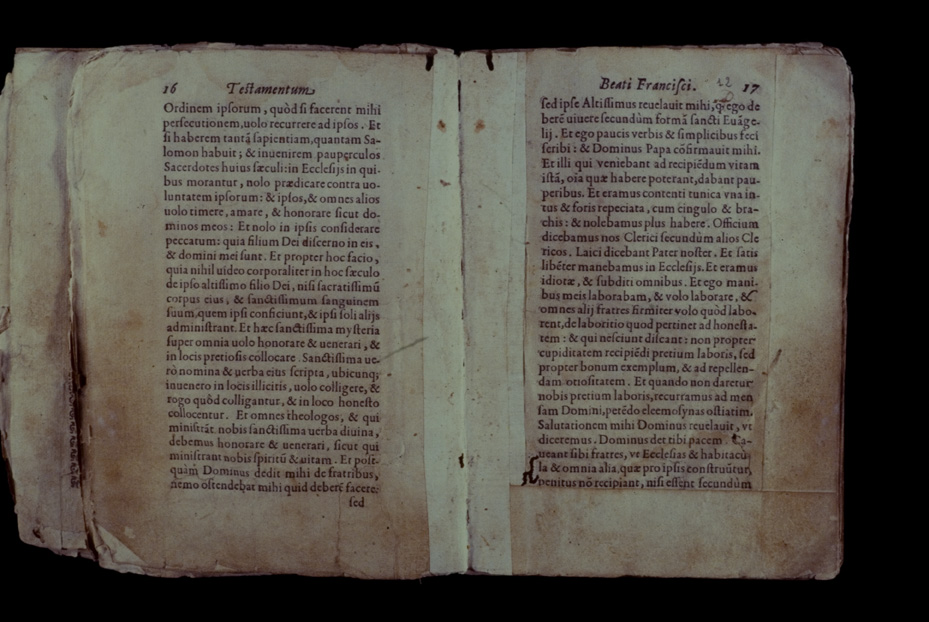 16 Testamentum
Ordinem ipsorum, quòd si facerent mihi
persecutionem, uolo recurrere ad ipsos. Et
si haberem tantā sapientiam, quantam Sa-
lomon habuit; & inuenirem pauperculos
Sacerdotes huius sæculi: in Ecclesijs in qui-
bus morantur, nolo prædicare contra uo-
luntatem ipsorum: & ipsos, & omnes alios
uolo timere, amare, & honorare sicut do-
minos meos: Et nolo in ipsis considerare
peccatum: quia filium Dei discerno in eis,
& domini mei sunt. Et propter hoc facio,
quia nihil uideo corporaliter in hoc sæculo
de ipso altissimo filio Dei, nisi sacratissimū
corpus eius, & sanctissimum sanguinem
suum, quem ipsi conficiunt, & ipsi soli alijs
administrant. Et hæc sanctissima mysteria
super omnia uolo honorare & uenerari, &
in locis pretiosis collocare. Sanctissima ue-
rò nomina & uerba eius scripta, ubicunq;
inuenero in locis illicitis, uolo colligere, &
rogo quòd colligantur, & in loco honesto
collocentur. Et omnes theologos, & qui
ministrāt nobis sanctissima uerba diuina,
debemus honorare & uenerari, sicut qui
ministrant nobis spiritū & uitam. Et post-
quàm Dominus dedit mihi de fratribus,
nemo ostendebat mihi quid deberē facere:
sed
Beati Francisci. 12 17
sed ipse Altissimus reuelauit mihi, ꝙ ego de
berē uiuere secundùm formā sancti Euāge-
lij. Et ego paucis verbis & simplicibus feci
scribi: & Dominus Papa cōfirmauit mihi.
Et illi qui veniebant ad recipiēdum vitam
istā, oīa quæ habere poterant, dabant pau-
peribus. Et eramus contenti tunica vna in-
tus & foris repeciata, cum cingulo & bra-
chis: & nolebamus plus habere. Officium
dicebamus nos Clerici secundùm alios Cle
ricos. Laici dicebant Pater noster. Et satis
libēter manebamus in Ecclesijs. Et eramus
idiotæ, & subditi omnibus. Et ego mani-
bus meis laborabam, & volo laborare, &
omnes alij fratres firmiter volo quòd labo-
rent, de laboritio quod pertinet ad honesta-
tem: & qui nesciunt discant: non propter
cupiditatem recipiēdi pretium laboris, sed
propter bonum exemplum, & ad repellen-
dam otiositatem. Et quando non daretur
nobis pretium laboris, recurramus ad men
sam Domini, petēdo eleemosynas ostiatim.
Salutationem mihi Dominus reuelauit, vt
diceremus. Dominus det tibi pacem. Ca-
ueant sibi fratres, vt Ecclesias & habitacu-
la & omnia alia, quæ pro ipsis construūtur,
penitus nō recipiant, nisi essent secundùm